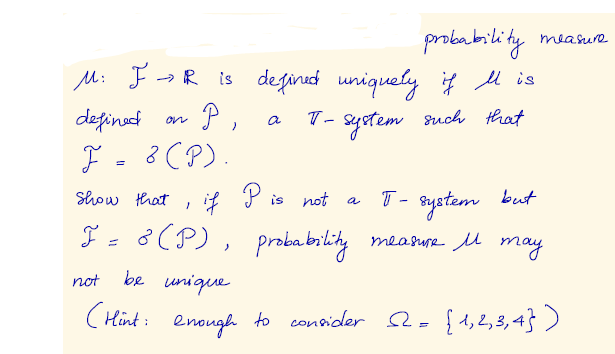 probability measure
μ: ℱ → ℝ is defined uniquely if μ is
defined on 𝒫, a π-system such that
ℱ = σ(𝒫).
Show that, if 𝒫 is not a π-system but
ℱ = σ(𝒫), probability measure μ may
not be unique
(Hint: enough to consider Ω = {1,2,3,4})